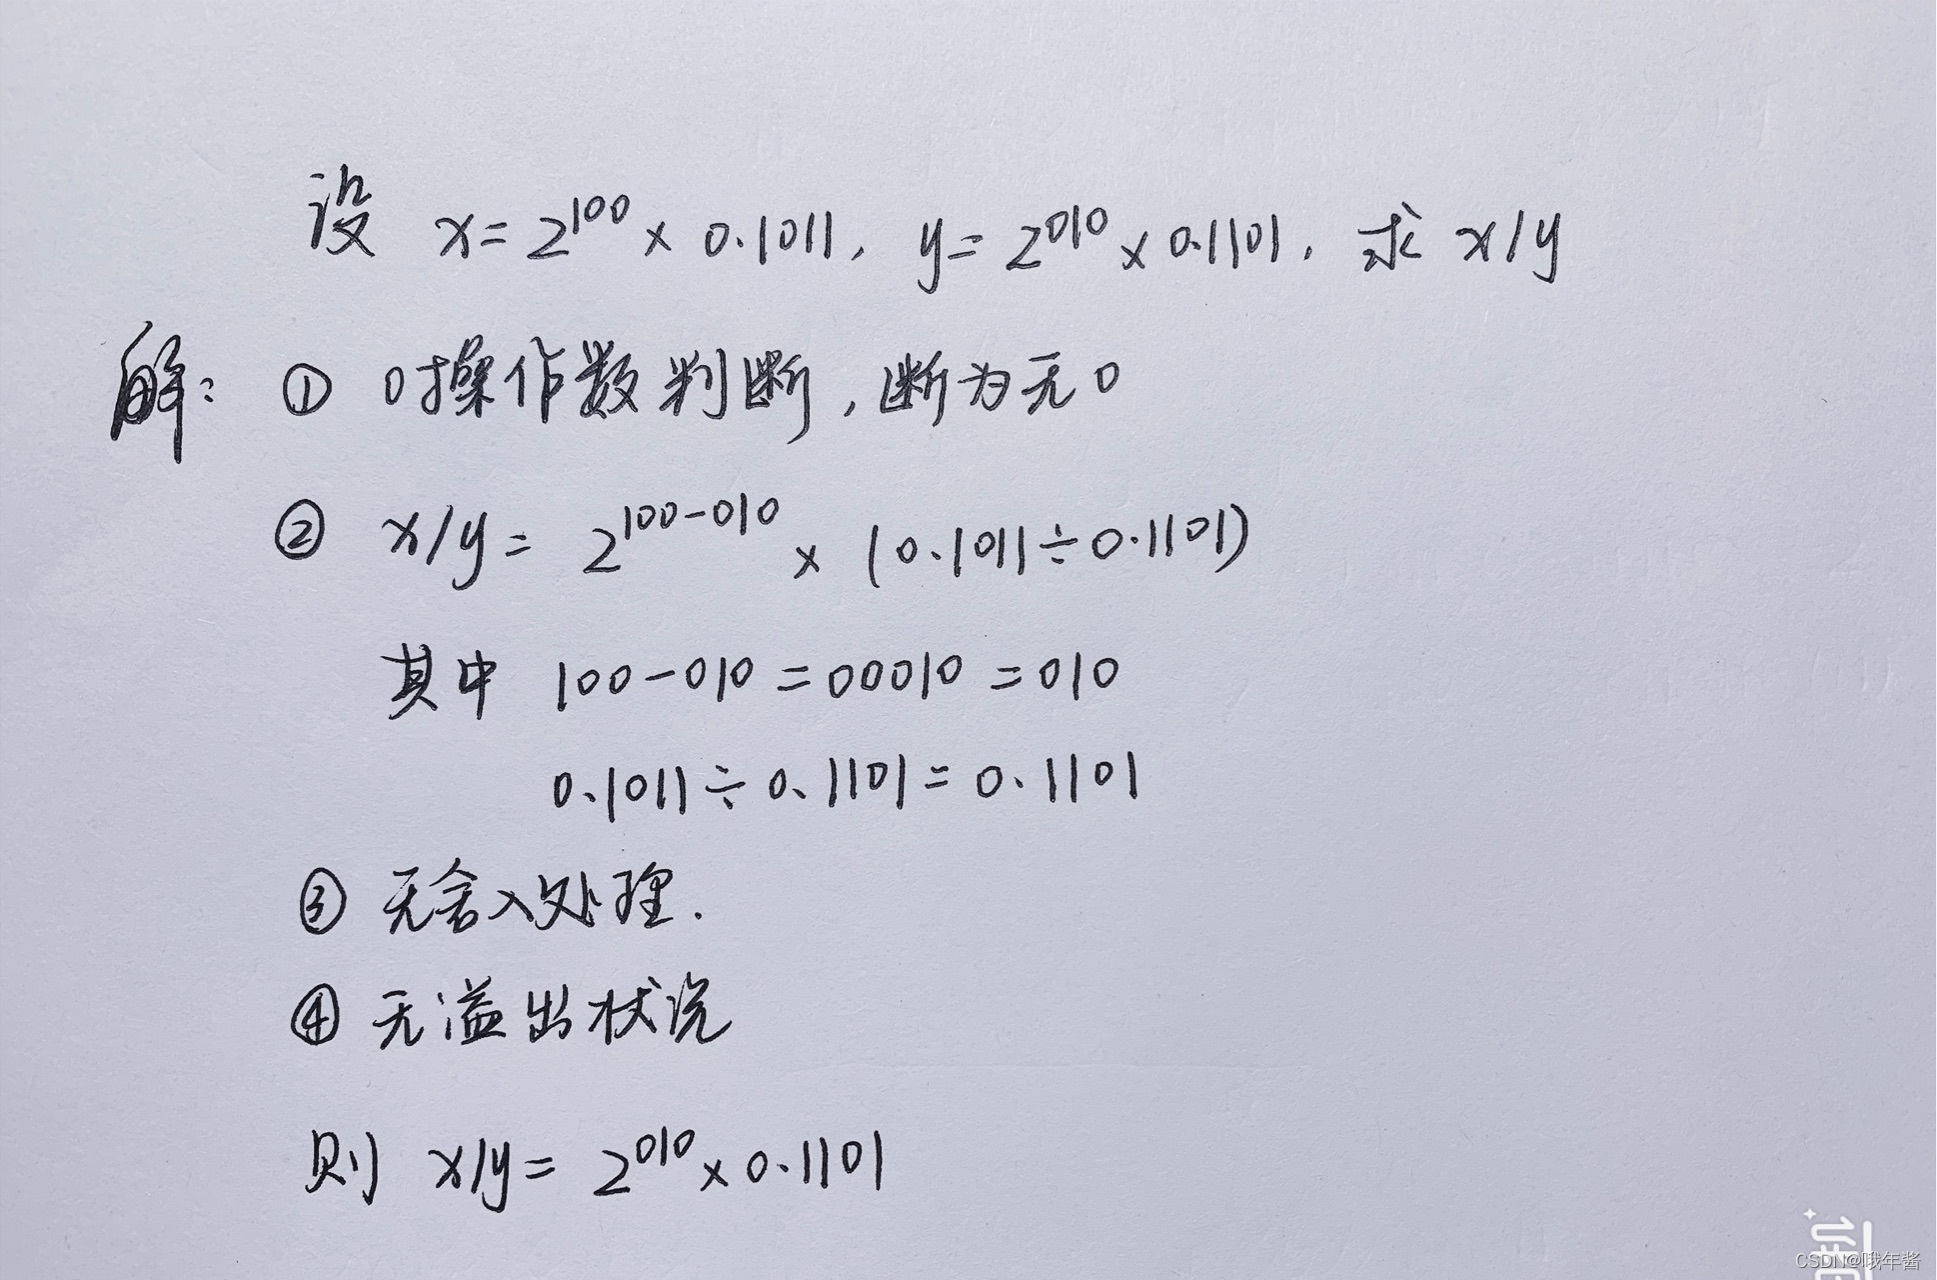 设 x=2^100 × 0.1011, y=2^010 × 0.1101, 求 x/y
解: ① 0操作数判断,断为无0
② x/y = 2^100-010 × (0.1011÷0.1101)
其中 100-010=00010=010
0.1011÷0.1101=0.1101
③ 无舍入处理.
④ 无溢出状况
则 x/y= 2^010 × 0.1101
CSDN @哦年酱